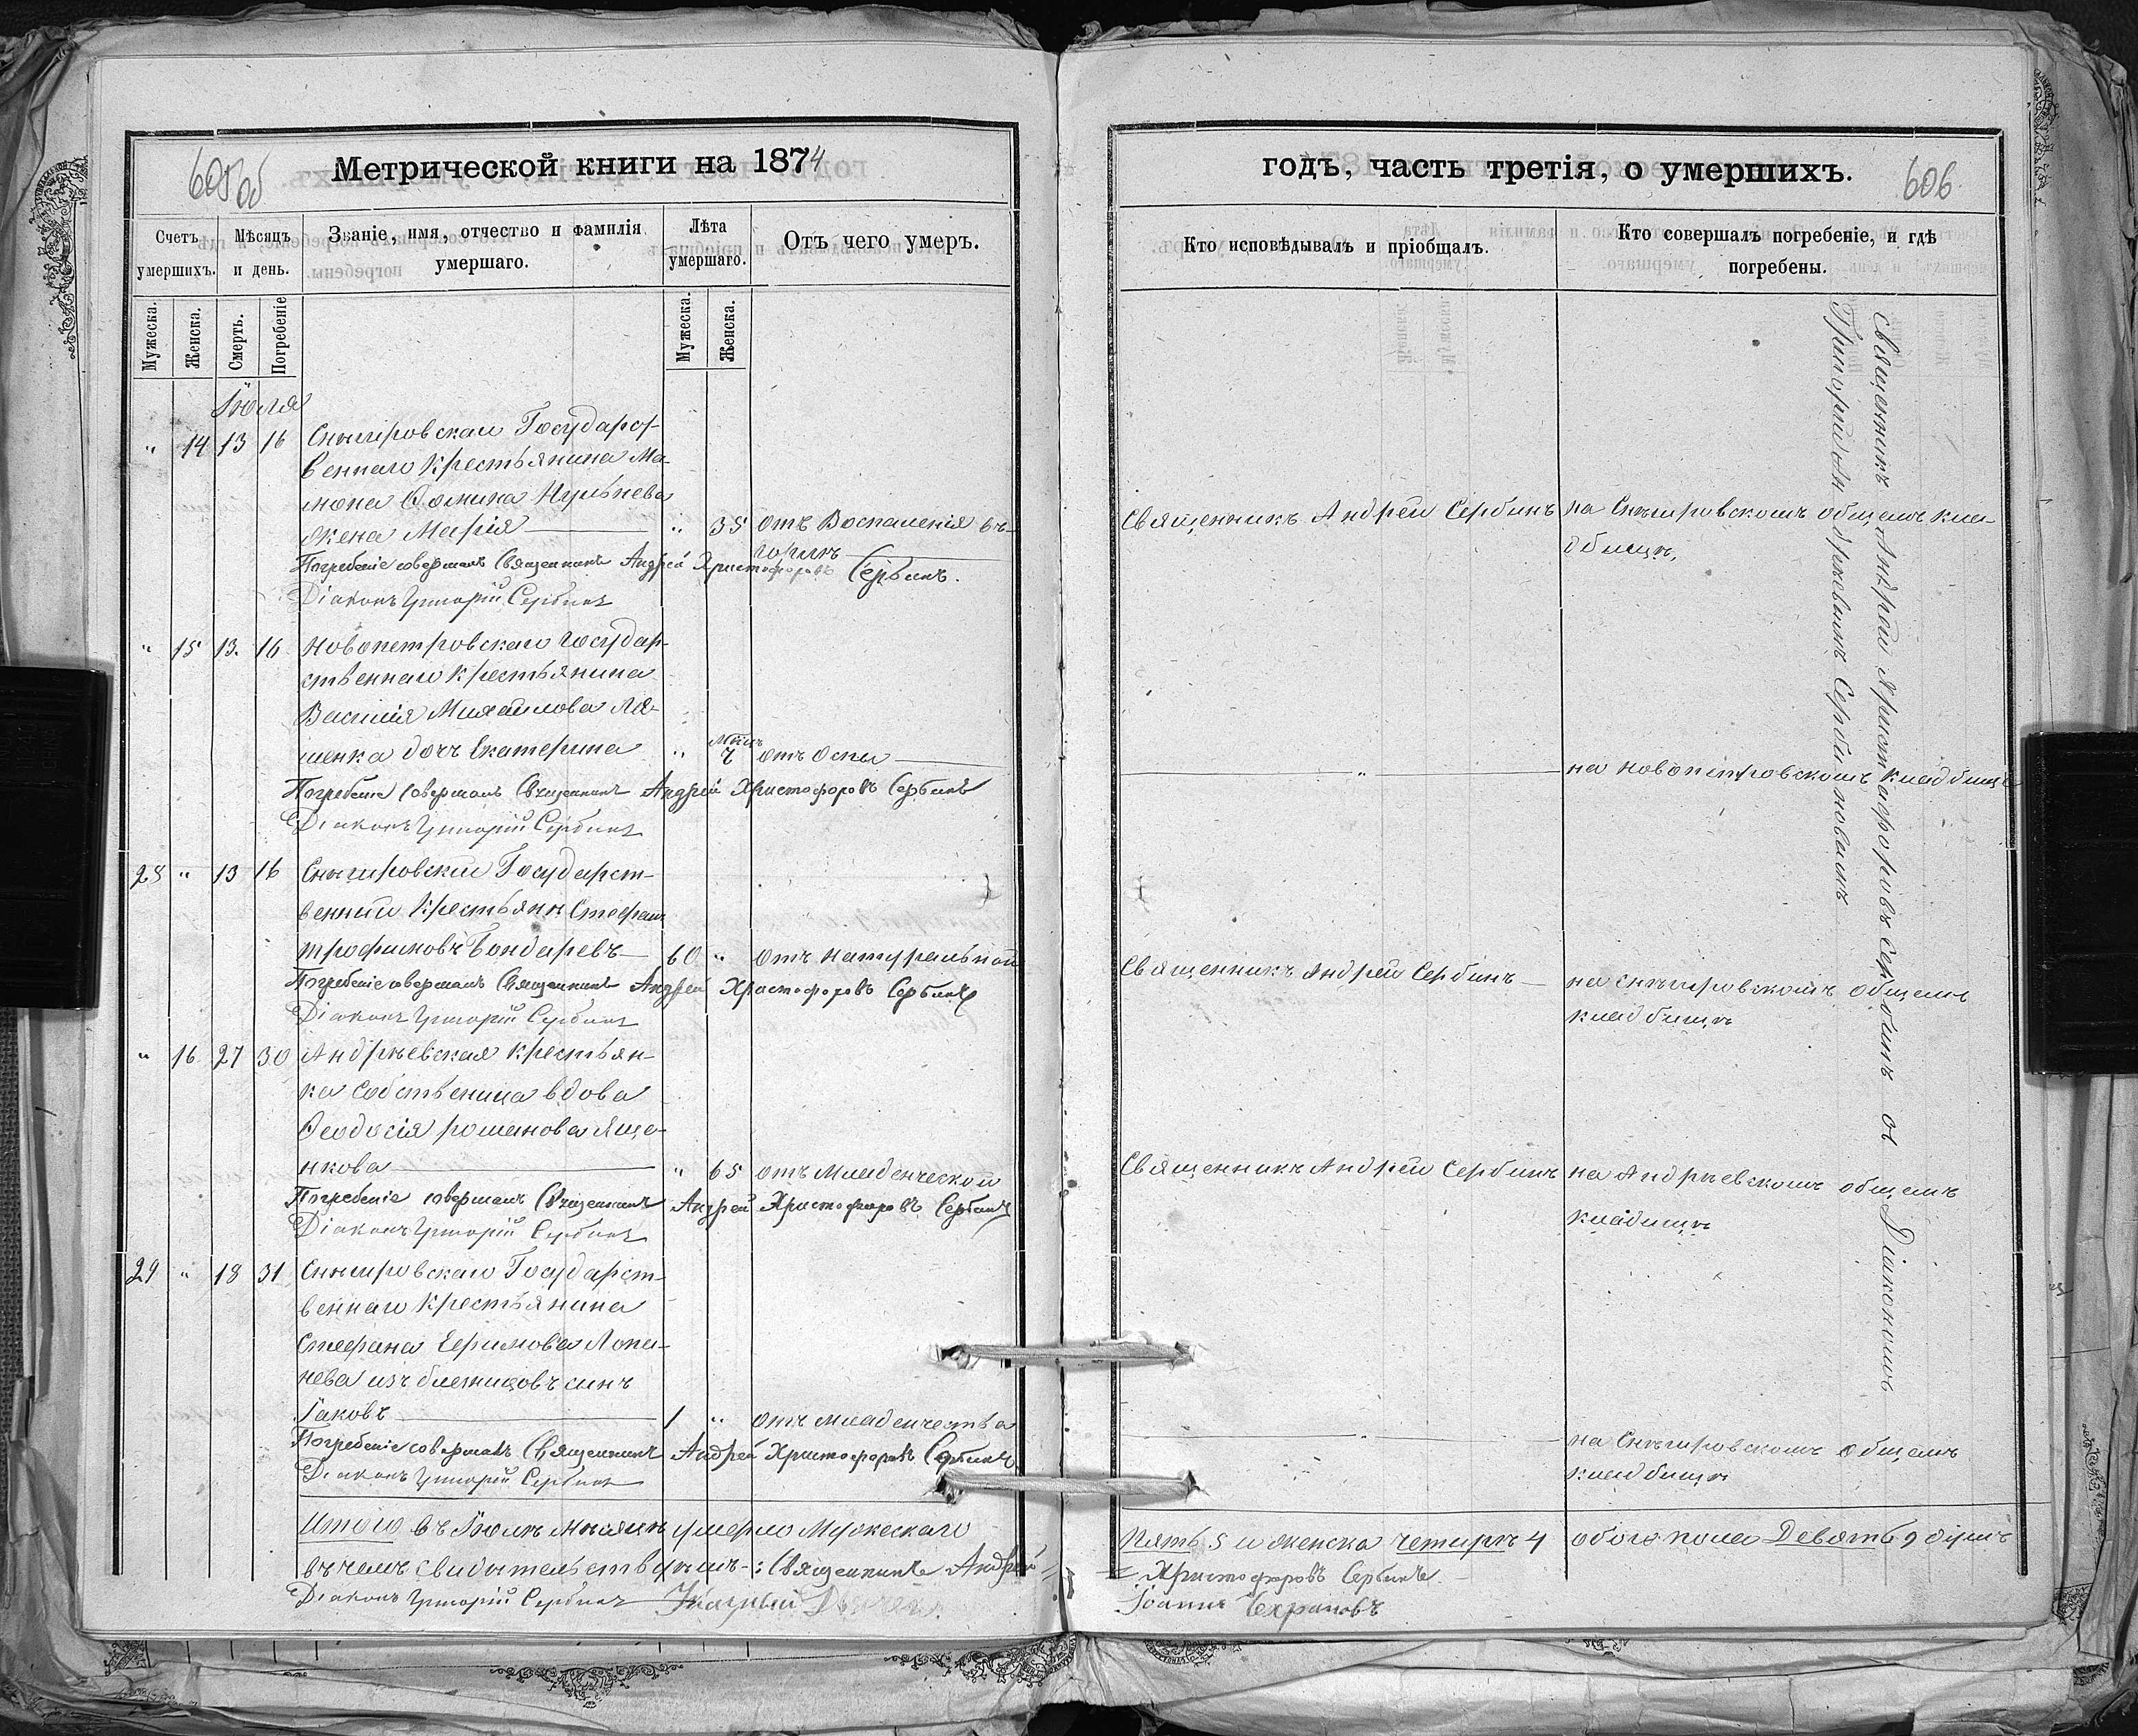 605 об
Метрической книги на 1874
Счетъ умершихъ.
Мѣсяцъ и день.
Званіе, имя, отчество и фамилія умершаго.
Лѣта умершаго.
Отъ чего умеръ.
Мужеска.
Женска.
Смерть.
Погребеніе
Мужеска.
Женска.
Іюля
" 14 13 16 Снѣгировскаго Государст-
веннаго крестьянина Ма-
мона Фомина
жена Марія " 35 отъ Воспаленія въ
горлѣ
Погребеніе совершалъ Священникъ Андрей Христофоровъ Сербинъ.
Діаконъ Григорій Сербинъ
" 15 13. 16 Новопетровскаго государ-
ственнаго крестьянина
Василія Михайлова Ля-
шенка дочь Екатерина " Мѣц. 4 отъ оспы
Погребеніе совершалъ Священникъ Андрей Христофоровъ Сербинъ
Діаконъ Григорій Сербинъ
28 " 13 16 Снѣгировскій Государст-
венный Крестьянинъ Стефанъ
Трофимовъ Бондаревъ 60 " отъ натуральной
Погребеніе совершалъ Священникъ Андрей Христофоровъ Сербинъ
Діаконъ Григорій Сербинъ
" 16 27 30 Андрѣевская крестьян-
ка собственица вдова
Феодосія романова Яще-
нкова " 65 отъ младенческой
Погребеніе совершалъ Священникъ Андрей Христофоровъ Сербинъ
Діаконъ Григорій Сербинъ
29 " 18 31 Снѣгировскаго Государст-
веннаго крестьянина
Стефана Ефимова Лопа-
нева изъ близнецовъ сынъ
Іаковъ 1 " отъ младенчества
Погребеніе совершалъ Священникъ Андрей Христофоровъ Сербинъ
Діаконъ Григорій Сербинъ
Итого въ Іюлѣ мѣсяцѣ умерло Мужескаго
въ чемъ свидѣтельствуемъ: Священникъ Андрей
Діаконъ Григорій Сербинъ
годъ, часть третія, о умершихъ.
606
Кто исповѣдывалъ и пріобщалъ.
Кто совершалъ погребеніе, и гдѣ погребены.
Священникъ Андрей Сербинъ на Снѣгировскомъ общемъ кла-
дбищѣ,
" на новопетровскомъ кладбищѣ
Священникъ Андрей Сербинъ на снѣгировскомъ общемъ
кладбищѣ
Священникъ Андрей Сербинъ на Андрѣевскомъ общемъ
кладищѣ
" на Снѣгировскомъ общемъ
кладбищѣ
Священникъ Андрей Христофоровъ Сербинъ съ Діакономъ
Сербиновымъ
Пять 5 и женска четыре 4 обоего пола Девять 9 душъ
Христофоровъ Сербинъ
Іоаннъ